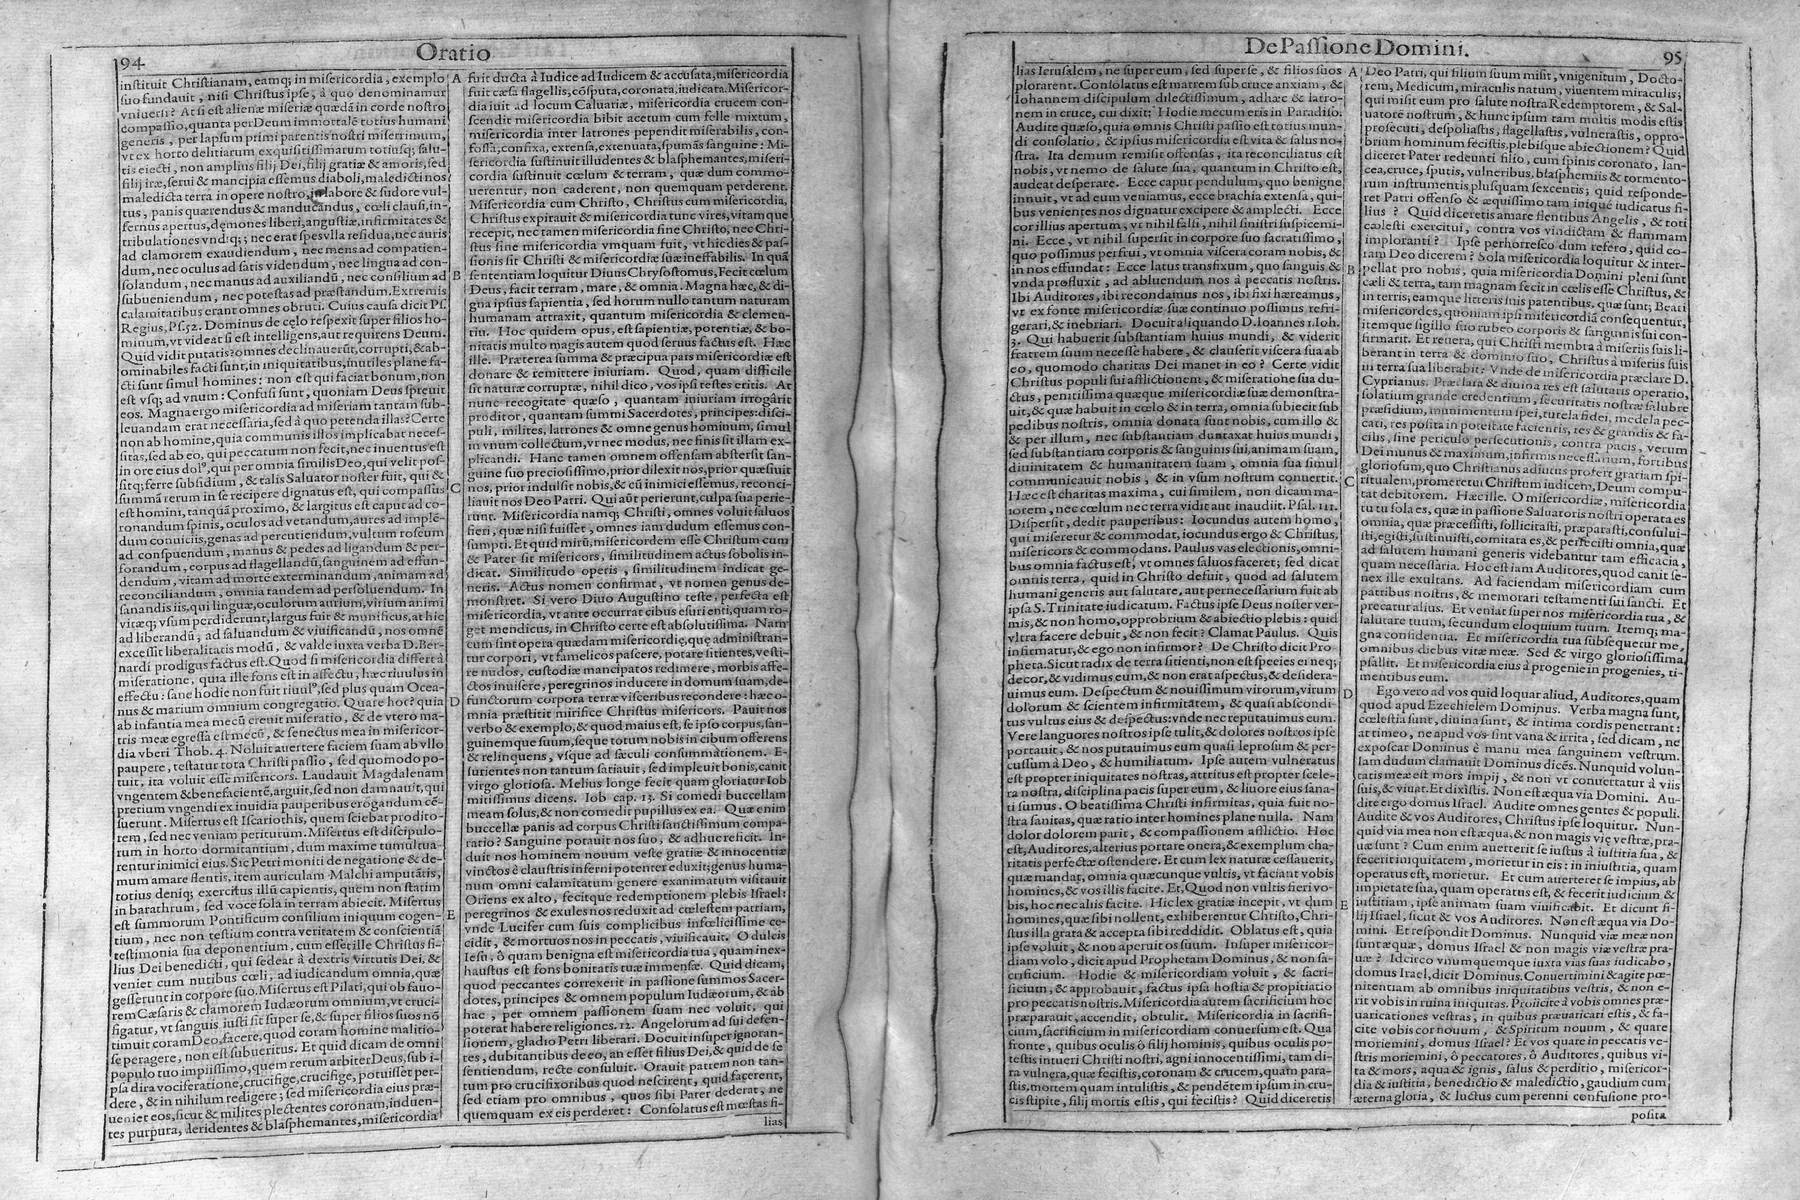 94
Oratio
instituit Christianam, eamq; in misericordia, exemplo
suo fundauit, nisi Christus ipse, à quo denominamur
vniuersi? At si est alienæ miseriæ quædā in corde nostro
compassio, quanta per Deum immortalē totius humani
generis, per lapsum primi parentis nostri miserrimum,
vt ex horto delitiarum exquisitissimarum totiusq; salu-
tis eiecti, non amplius filij Dei, filij gratiæ & amoris, sed
filij iræ, serui & mancipia essemus diaboli, maledicti nos
maledicta terra in opere nostro, in labore & sudore vul-
tus, panis quærendus & manducandus, cœli clausi, in-
fernus apertus, dęmones liberi, angustiæ, infirmitates &
tribulationes vndiq;; nec erat spes vlla residua, nec auris
ad clamorem exaudiendum, nec mens ad compatien-
dum, nec oculus ad satis videndum, nec lingua ad con-
solandum, nec manus ad auxiliandū, nec consilium ad
subueniendum, nec potestas ad præstandum. Extremis
calamitatibus erant omnes obruti. Cuius causa dicit Ps.
Regius, Ps. 52. Dominus de cęlo respexit super filios ho-
minum, vt videat si est intelligens, aut requirens Deum.
Quid vidit putatis? omnes declinauerūt, corrupti, & ab-
ominabiles facti sunt, in iniquitatibus, inutiles plane fa-
cti sunt simul homines: non est qui faciat bonum, non
est vsq; ad vnum: Confusi sunt, quoniam Deus spreuit
eos. Magna ergo misericordia ad miseriam tantam sub-
leuandam erat necessaria, sed à quo petenda illas? Certe
non ab homine, quia communis illos implicabat neces-
sitas, sed ab eo, qui peccatum non fecit, nec inuentus est
in ore eius dol⁹, qui per omnia similis Deo, qui velit pos-
sitq; ferre subsidium, & talis Saluator noster fuit, qui &
summā rerum in se recipere dignatus est, qui compassus
est homini, tanquā proximo, & largitus est caput ad co-
ronandum spinis, oculos ad vetandum, aures ad implē-
dum conuiciis, genas ad percutiendum, vultum roseum
ad conspuendum, manus & pedes ad ligandum & per-
forandum, corpus ad flagellandū, sanguinem ad effun-
dendum, vitam ad mortē exterminandum, animam ad
reconciliandum, omnia tandem ad persoluendum. In
sanandis iis, qui linguæ, oculorum aurium, virium animi
vitæq; vsum perdiderunt, largus fuit & munificus, at hic
ad liberandū, ad saluandum & viuificandū, nos omnē
excessit liberalitatis modū, & valde iuxta verba D. Ber-
nardi prodigus factus est. Quod si misericordia differt à
miseratione, quia ille fons est in affectu, hæc riuulus in
effectu: sane hodie non fuit riuul⁹, sed plus quam Ocea-
nus & marium omnium congregatio. Quare hoc? quia
ab infantia mea mecū creuit miseratio, & de vtero ma-
tris meæ egressa est mecū, & senectus mea in misericor-
dia vberi Thob. 4. Noluit auertere faciem suam ab vllo
paupere, testatur tota Christi passio, sed quomodo po-
tuit, ita voluit esse misericors. Laudauit Magdalenam
vngentem & benefacientē, arguit, sed non damnauit, qui
pretium vngendi ex inuidia pauperibus erogandum cē-
suerunt. Misertus est Iscariothis, quem sciebat prodito-
rem, sed nec veniam petiturum. Misertus est discipulo-
rum in horto dormitantium, dum maxime tumultua-
rentur inimici eius. Sic Petri moniti de negatione & de-
mum amare flentis, item auriculam Malchi amputātis,
totius deniq; exercitus illū capientis, quem non statim
in barathrum, sed voce sola in terram abiecit. Misertus
est summorum Pontificum consilium iniquum cogen-
tium, nec non testium contra veritatem & conscientiā
testimonia sua deponentium, cum esset ille Christus fi-
lius Dei benedicti, qui sedeat à dextris Virtutis Dei, &
veniet cum nutibus cœli, ad iudicandum omnia, quæ
gesserunt in corpore suo. Misertus est Pilati, qui ob fauo-
rem Cæsaris & clamorem Iudæorum omnium, vt cruci-
figatur, vt sanguis iusti sit super se, & super filios suos nō
timuit coram Deo, facere, quod coram homine malitio-
se peragere, non est subueritus. Et quid dicam de omni
populo tuo impiissimo, quem rerum arbiter Deus, sub i-
psa dira vociferatione, crucifige, crucifige, potuisset per-
dere, & in nihilum redigere; sed misericordia eius præ-
ueniet eos, sicut & milites plectentes coronam, induen-
tes purpura, deridentes & blasphemantes, misericordia
A
B
C
D
E
fuit ducta à Iudice ad Iudicem & accusata, misericordia
fuit cæsa flagellis, cōsputa, coronata, iudicata. Misericor-
dia iuit ad locum Caluariæ, misericordia crucem con-
scendit misericordia bibit acetum cum felle mixtum,
misericordia inter latrones pependit miserabilis, con-
fossa, confixa, extensa, extenuata, spumās sanguine: Mi-
sericordia sustinuit illudentes & blasphemantes, miseri-
cordia sustinuit cœlum & terram, quæ dum commo-
uerentur, non caderent, non quemquam perderent.
Misericordia cum Christo, Christus cum misericordia,
Christus expirauit & misericordia tunc vires, vitamque
recepit, nec tamen misericordia sine Christo, nec Chri-
stus sine misericordia vmquam fuit, vt hic dies & pas-
sionis sit Christi & misericordiæ suæ ineffabilis. In quā
sententiam loquitur Diuus Chrysostomus, Fecit cœlum
Deus, facit terram, mare, & omnia. Magna hæc, & di-
gna ipsius sapientia, sed horum nullo tantum naturam
humanam attraxit, quantum misericordia & clemen-
tia. Hoc quidem opus, est sapientiæ, potentiæ, & bo-
nitatis multo magis autem quod seruus factus est. Hæc
ille. Præterea summa & præcipua pars misericordiæ est
donare & remittere iniuriam. Quod, quam difficile
sit naturæ corruptæ, nihil dico, vos ipsi testes eritis. At
nunc recogitate quæso, quantam iniuriam irrogârit
proditor, quantam summi Sacerdotes, principes: disci-
puli, milites, latrones & omne genus hominum, simul
in vnum collectum, vt nec modus, nec finis sit illam ex-
plicandi. Hanc tamen omnem offensam abstersit san-
guine suo preciosissimo, prior dilexit nos, prior quæsiuit
nos, prior indulsit nobis, & cū inimici essemus, reconci-
liauit nos Deo Patri. Qui aūt perierunt, culpa sua perie-
runt. Misericordia namq; Christi, omnes voluit saluos
fieri, quæ nisi fuisset, omnes iam dudum essemus con-
sumpti. Et quid mirū, misericordem esse Christum cum
& Pater sit misericors, similitudinem actus sobolis in-
dicat. Similitudo operis, similitudinem indicat ge-
neris. Actus nomen confirmat, vt nomen genus de-
monstret. Si vero Diuo Augustino teste, perfecta est
misericordia, vt ante occurrat cibus esurienti, quam ro-
get mendicus, in Christo certe est absolutissima. Nam
cum sint opera quædam misericordię, quę administran-
tur corpori, vt famelicos pascere, potare sitientes, vesti-
re nudos, custodiæ mancipatos redimere, morbis affe-
ctos inuisere, peregrinos inducere in domum suam, de-
functorum corpora terræ visceribus recondere: hæc o-
mnia præstitit mirifice Christus misericors. Pauit nos
verbo & exemplo, & quod maius est, se ipso corpus, san-
guinemque suum, seque totum nobis in cibum offerens
& relinquens, vsque ad sæculi consummationem. E-
surientes non tantum satiauit, sed impleuit bonis, canit
virgo gloriosa. Melius longe fecit quam gloriatur Iob
mitissimus dicens. Iob cap. 13. Si comedi buccellam
meam solus, & non comedit pupillus ex ea. Quæ enim
buccellæ panis ad corpus Christi sanctissimum compa-
ratio? Sanguine potauit nos suo, & adhuc reficit. In-
duit nos hominem nouum veste gratiæ & innocentiæ
vinctos è claustris inferni potenter eduxit; genus huma-
num omni calamitatum genere exanimatum visitauit
Oriens ex alto, fecitque redemptionem plebis Israel:
peregrinos & exules nos reduxit ad cœlestem patriam,
vnde Lucifer cum suis complicibus infœlicissime ce-
cidit, & mortuos nos in peccatis, viuificauit. O dulcis
Iesu, ô quam benigna est misericordia tua, quam inex-
haustus est fons bonitatis tuæ immensæ. Quid dicam,
quod peccantes correxerit in passione summos Sacer-
dotes, principes & omnem populum Iudæorum, & ab
hac, per omnem passionem suam nec voluit, qui
poterat habere religiones. 12. Angelorum ad sui defen-
sionem, gladio Petri liberari. Docuit insuper ignoran-
tes, dubitantibus de eo, an esset filius Dei, & quid de se
sentiendum, recte consuluit. Orauit patrem non tan-
tum pro crucifixoribus quod nescirent, quid facerent,
sed etiam pro omnibus, quos sibi Pater dederat, ne
quemquam ex eis perderet: Consolatus est mœstas fi-
lias
De Passione Domini.
95
lias Ierusalem, ne super eum, sed super se, & filios suos
plorarent. Consolatus est matrem sub cruce anxiam, &
Iohannem discipulum dilectissimum, adhæc & latro-
nem in cruce, cui dixit: Hodie mecum eris in Paradiso.
Audite quæso, quia omnis Christi passio est totius mun-
di consolatio, & ipsius misericordia est vita & salus no-
stra. Ita demum remisit offensas, ita reconciliatus est
nobis, vt nemo de salute sua, quantum in Christo est,
audeat desperare. Ecce caput pendulum, quo benigne
innuit, vt ad eum veniamus, ecce brachia extensa, qui-
bus venientes nos dignatur excipere & amplecti. Ecce
cor illius apertum, vt nihil falsi, nihil sinistri suspicemi-
ni. Ecce, vt nihil supersit in corpore suo sacratissimo,
quo possimus perfrui, vt omnia viscera coram nobis, &
in nos effundat: Ecce latus transfixum, quo sanguis &
vnda profluxit, ad abluendum nos à peccatis nostris.
Ibi Auditores, ibi recondamus nos, ibi fixi hæreamus,
vt ex fonte misericordiæ suæ continuo possimus refri-
gerari, & inebriari. Docuit aliquando D. Ioannes 1. Ioh.
3. Qui habuerit substantiam huius mundi, & viderit
fratrem suum necesse habere, & clauserit viscera sua ab
eo, quomodo charitas Dei manet in eo? Certe vidit
Christus populi sui afflictionem, & miseratione sua du-
ctus, penitissima quæque misericordiæ suæ demonstra-
uit, & quæ habuit in cœlo & in terra, omnia subiecit sub
pedibus nostris, omnia donata sunt nobis, cum illo &
& per illum, nec substantiam duntaxat huius mundi,
sed substantiam corporis & sanguinis sui, animam suam,
diuinitatem & humanitatem suam, omnia sua simul
communicauit nobis, & in vsum nostrum conuertit.
Hæc est charitas maxima, cui similem, non dicam ma-
iorem, nec cœlum nec terra vidit aut inaudiit. Psal. 111.
Dispersit, dedit pauperibus: Iocundus autem homo,
qui miseretur & commodat, iocundus ergo & Christus,
misericors & commodans. Paulus vas electionis, omni-
bus omnia factus est, vt omnes saluos faceret; sed dicat
omnis terra, quid in Christo defuit, quod ad salutem
humani generis aut salutare, aut pernecessarium fuit ab
ipsa S. Trinitate iudicatum. Factus ipse Deus noster ver-
mis, & non homo, opprobrium & abiectio plebis: quid
vltra facere debuit, & non fecit? Clamat Paulus. Quis
infirmatur, & ego non infirmor? De Christo dicit Pro-
pheta. Sicut radix de terra sitienti, non est species ei neq;
decor, & vidimus eum, & non erat aspectus, & desidera-
uimus eum. Despectum & nouissimum virorum, virum
dolorum & scientem infirmitatem, & quasi abscondi-
tus vultus eius & despectus: vnde nec reputauimus eum.
Vere languores nostros ipse tulit, & dolores nostros ipse
portauit, & nos putauimus eum quasi leprosum & per-
cussum à Deo, & humiliatum. Ipse autem vulneratus
est propter iniquitates nostras, attritus est propter scele-
ra nostra, disciplina pacis super eum, & liuore eius sana-
ti sumus. O beatissima Christi infirmitas, quia fuit no-
stra sanitas, quæ ratio inter homines plane nulla. Nam
dolor dolorem parit, & compassionem afflictio. Hoc
est, Auditores, alterius portare onera, & exemplum cha-
ritatis perfectæ ostendere. Et cum lex naturæ cessauerit,
quæ mandat, omnia quæcunque vultis, vt faciant vobis
homines, & vos illis facite. Et, Quod non vultis fieri vo-
bis, hoc ne aliis facite. Hic lex gratiæ incepit, vt dum
homines, quæ sibi nollent, exhiberentur Christo, Chri-
stus illa grata & accepta sibi reddidit. Oblatus est, quia
ipse voluit, & non aperuit os suum. Insuper misericor-
diam volo, dicit apud Prophetam Dominus, & non sa-
crificium. Hodie & misericordiam voluit, & sacri-
ficium, & approbauit, factus ipsa hostia & propitiatio
pro peccatis nostris. Misericordia autem sacrificium hoc
præparauit, accendit, obtulit. Misericordia in sacrifi-
cium, sacrificium in misericordiam conuersum est. Qua
fronte, quibus oculis ô filij hominis, quibus oculis po-
testis intueri Christi nostri, agni innocentissimi, tam di-
ra vulnera, quæ fecistis, coronam & crucem, quam para-
stis, mortem quam intulistis, & pendētem ipsum in cru-
cis stipite, filij mortis estis, qui fecistis? Quid diceretis
A
B
C
D
E
Deo Patri, qui filium suum misit, vnigenitum, Docto-
rem, Medicum, miraculis natum, viuentem miraculis;
qui misit eum pro salute nostra Redemptorem, & Sal-
uatorē nostrum, & hunc ipsum tam multis modis estis
prosecuti, despoliastis, flagellastis, vulnerastis, oppro-
brium hominum fecistis, plebisque abiectionem? Quid
diceret Pater redeunti filio, cum spinis coronato, lan-
cea, cruce, sputis, vulneribus, blasphemiis & tormento-
rum instrumentis plusquam sexcentis; quid responde-
ret Patri offenso & æquissimo tam iniquè iudicatus fi-
lius? Quid diceretis amare flentibus Angelis, & toti
cælesti exercitui, contra vos vindictam & flammam
imploranti? Ipse perhorresco dum refero, quid co-
ram Deo dicerem? Sola misericordia loquitur & inter-
pellat pro nobis, quia misericordia Domini pleni sunt
cæli & terra, tam magnam fecit in cœlis esse Christus, &
in terris; eamque litteris suis patentibus, quæ sunt; Beati
misericordes, quoniam ipsi misericordiā consequentur,
itemque sigillo suo rubeo corporis & sanguinis sui con-
firmarit. Et reuera, qui Christi membra à miseriis suis li-
berant in terra & dominio suo, Christus à miseriis suis
in terra sua liberabit? Vnde de misericordia præclare D.
Cyprianus. Præclara & diuina res est salutaris operatio,
solatium grande credentium, securitatis nostræ salubre
præsidium, munimentum spei, tutela fidei, medela pec-
cati, res posita in potestate facientis, res & grandis & fa-
cilis, sine periculo persecutionis, contra pacis, verum
Dei munus & maximum, infirmis necessarium, fortibus
gloriosum, quo Christianus adiutus profert gratiam spi-
ritualem, promeretur Christum iudicem, Deum compu-
tat debitorem. Hæc ille. O misericordiæ, misericordia
tu tu sola es, quæ in passione Saluatoris nostri operata es
omnia, quæ præcessisti, sollicitasti, præparasti, consului-
sti, egisti, sustinuisti, comitata es, & perfecisti omnia, quæ
ad salutem humani generis videbantur tam efficacia,
quam necessaria. Hoc est iam Auditores, quod canit se-
nex ille exultans. Ad faciendam misericordiam cum
patribus nostris, & memorari testamenti sui sancti. Et
precatur alius. Et veniat super nos misericordia tua, &
salutare tuum, secundum eloquium tuum. Itemq; ma-
gna confidentia. Et misericordia tua subsequetur me,
omnibus diebus vitæ meæ. Sed & virgo gloriosissima
psallit. Et misericordia eius à progenie in progenies, ti-
mentibus eum.
Ego vero ad vos quid loquar aliud, Auditores, quam
quod apud Ezechielem Dominus. Verba magna sunt,
cœlestia sunt, diuina sunt, & intima cordis penetrant:
at timeo, ne apud vos sint vana & irrita, sed dicam, ne
exposcat Dominus è manu mea sanguinem vestrum.
Iam dudum clamauit Dominus dicēs. Nunquid volun-
tatis meæ est mors impij, & non vt conuertatur à viis
suis, & viuat. Et dixistis. Non est æqua via Domini. Au-
dite ergo domus Israel. Audite omnes gentes & populi.
Audite & vos Auditores, Christus ipse loquitur. Nun-
quid via mea non est æqua, & non magis vię vestræ, pra-
uæ sunt? Cum enim auerterit se iustus à iustitia sua, &
fecerit iniquitatem, morietur in eis: in iniustitia, quam
operatus est, morietur. Et cum auerteret se impius, ab
impietate sua, quam operatus est, & fecerit iudicium &
iustitiam, ipse animam suam viuificabit. Et dicunt fi-
lij Israel, sicut & vos Auditores. Non est æqua via Do-
mini. Et respondit Dominus. Nunquid viæ meæ non
sunt æquæ, domus Israel & non magis viæ vestræ pra-
uæ? Idcirco vnumquemque iuxta vias suas iudicabo,
domus Irael, dicit Dominus. Conuertimini & agite pœ-
nitentiam ab omnibus iniquitatibus vestris, & non e-
rit vobis in ruina iniquitas. Proiicite à vobis omnes præ-
uaricationes vestras, in quibus præuaricati estis, & fa-
cite vobis cor nouum, & Spiritum nouum, & quare
moriemini, domus Israel? Et vos quare in peccatis ve-
stris moriemini, ô peccatores, ô Auditores, quibus vi-
ta & mors, aqua & ignis, salus & perditio, misericor-
dia & iustitia, benedictio & maledictio, gaudium cum
æterna gloria, & luctus cum perenni confusione pro-
posita